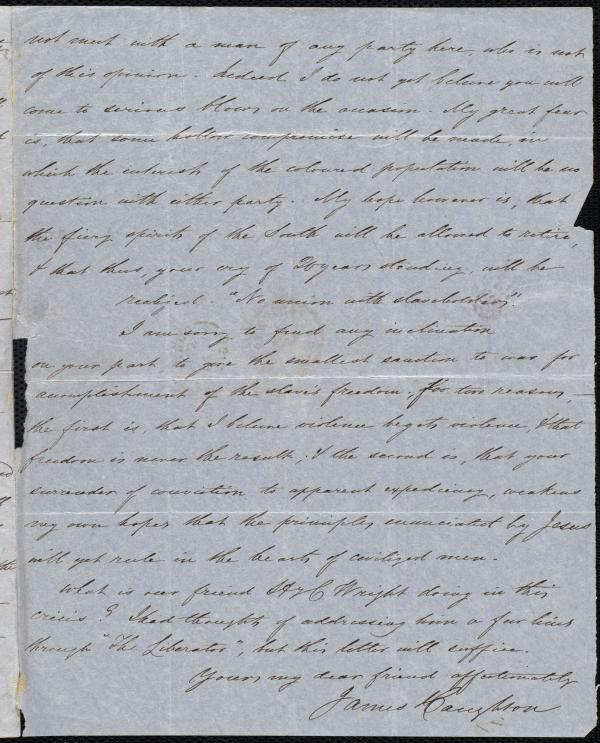 not meet with a man of any party here, who is not
of this opinion. Indeed I do not yet believe you will
come to serious blows on the occasion. My great fear
is, that some hollow compromise will be made, in
which the interests of the coloured population will be no
question with either party. My hope however is, that
the fiery spirits of the South will be allowed to retire,
& that thus, your cry of 20 years standing, will be
realized. "No union with slaveholders."
I am sorry to find any inclination
on your part to give the smallest sanction to war for
accomplishment of the slave's freedom; for two reasons,—
the first is, that I believe violence begets violence, & that
freedom is never the result; & the second is, that your
surrender of conviction to apparent expediency, weakens
my own hopes that the principles enunciated by Jesus
will yet rule in the hearts of civilized men.
What is our friend H C Wright doing in this
crisis? I had thought of addressing him a few lines
through "The Liberator", but this letter will suffice.
Yours my dear friend affectionately
James Haughton